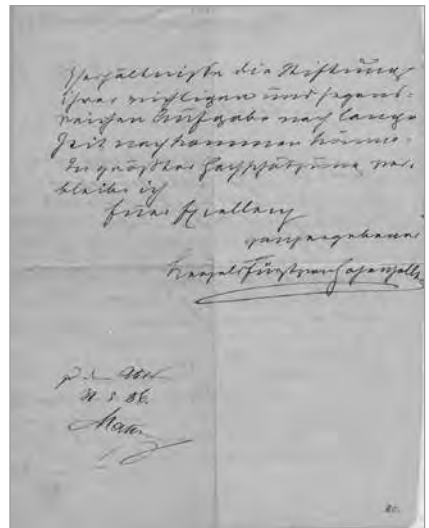 Verhältnisse die Stiftung
ihrer wichtigen und segens-
reichen Aufgabe noch lange
Zeit nachkommen könne.
In größter Hochschätzung ver-
bleibe ich
Euer Exzellenz
ganz ergebener
Fürst von Hohenzollern
20.